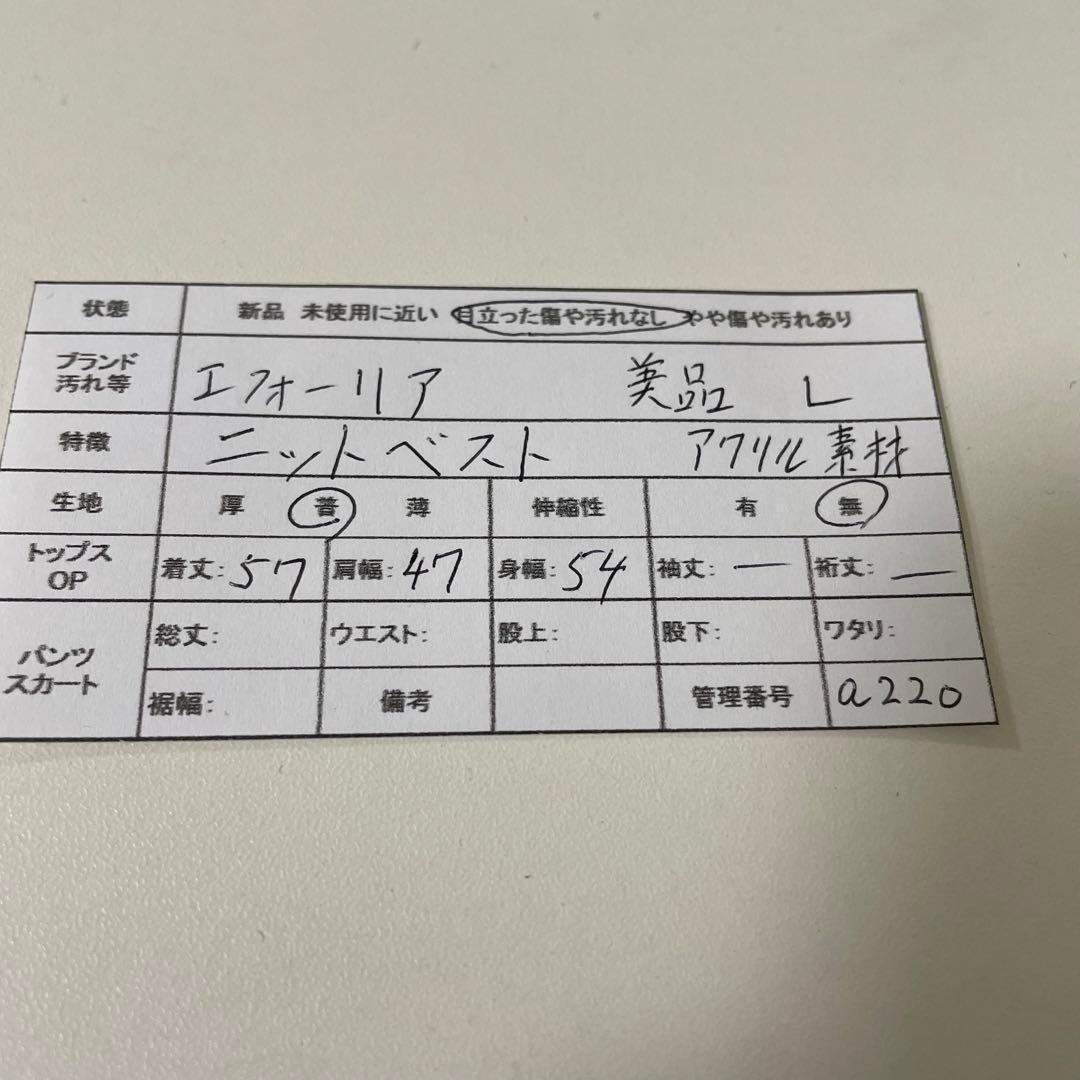 状態 新品 未使用に近い 目立った傷や汚れなし やや傷や汚れあり
ブランド 汚れ等 エフォーリア 美品 L
特徴 ニットベスト アクリル素材
生地 厚 普 薄 伸縮性 有 無
トップス OP 着丈:57 肩幅:47 身幅:54 袖丈:— 裄丈:—
パンツ スカート 総丈: ウエスト: 股上: 股下: ワタリ:
裾幅: 備考 管理番号 a220